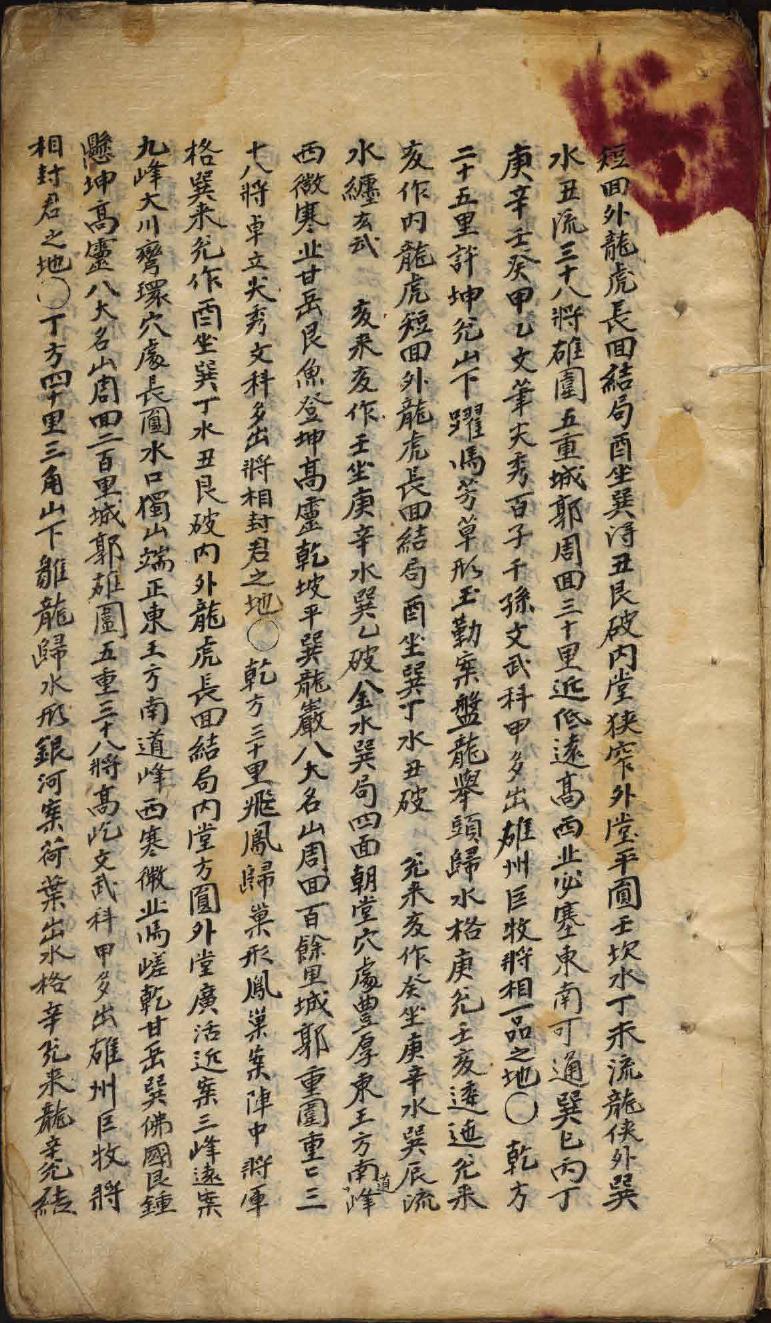 短回外龍虎長回結局酉坐巽淂丑艮破内堂狹窄外堂平圓壬坎水丁未流龍俠外巽
水丑流三十八將雄圍五重城郭周回三十里近低遠高西北必塞東南可通巽巳丙丁
庚辛壬癸甲乙文筆尖秀百子千孫文武科甲多出雄州巨牧將相一品之地○ 乾方
二十五里許坤兊山下躍馬芳草形玉勒案盤龍舉頭歸水格庚兊壬亥逶迤兊来
亥作内龍虎短回外龍虎長回結局酉坐巽丁水丑破 兊来亥作癸坐庚辛水巽辰流
水纏玄武 亥来亥作壬坐庚辛水巽乙破金水巽局四面朝堂穴處豊厚東王方南道峰
西微寒北甘岳艮魚登坤高靈乾坡平巽龍巖八大名山周回百餘里城郭重圍重〻三
十八將卓立尖秀文科多出將相封君之地○ 乾方三十里飛鳳歸巢形鳳巢案陣中將軍
格巽来兊作酉坐巽丁水丑艮破内外龍虎長回結局内堂方圓外堂廣活近案三峰遠案
九峰大川弯環穴處長圓水口獨山端正東王方南道峰西寒微北馬嵯乾甘岳巽佛國艮鍾
懸坤高靈八大名山周回二百里城郭雄圍五重三十八將高屹文武科甲多出雄州巨牧將
相封君之地○丁方四十里三角山下雛龍歸水形銀河案荷葉出水格辛兊来龍辛兊結